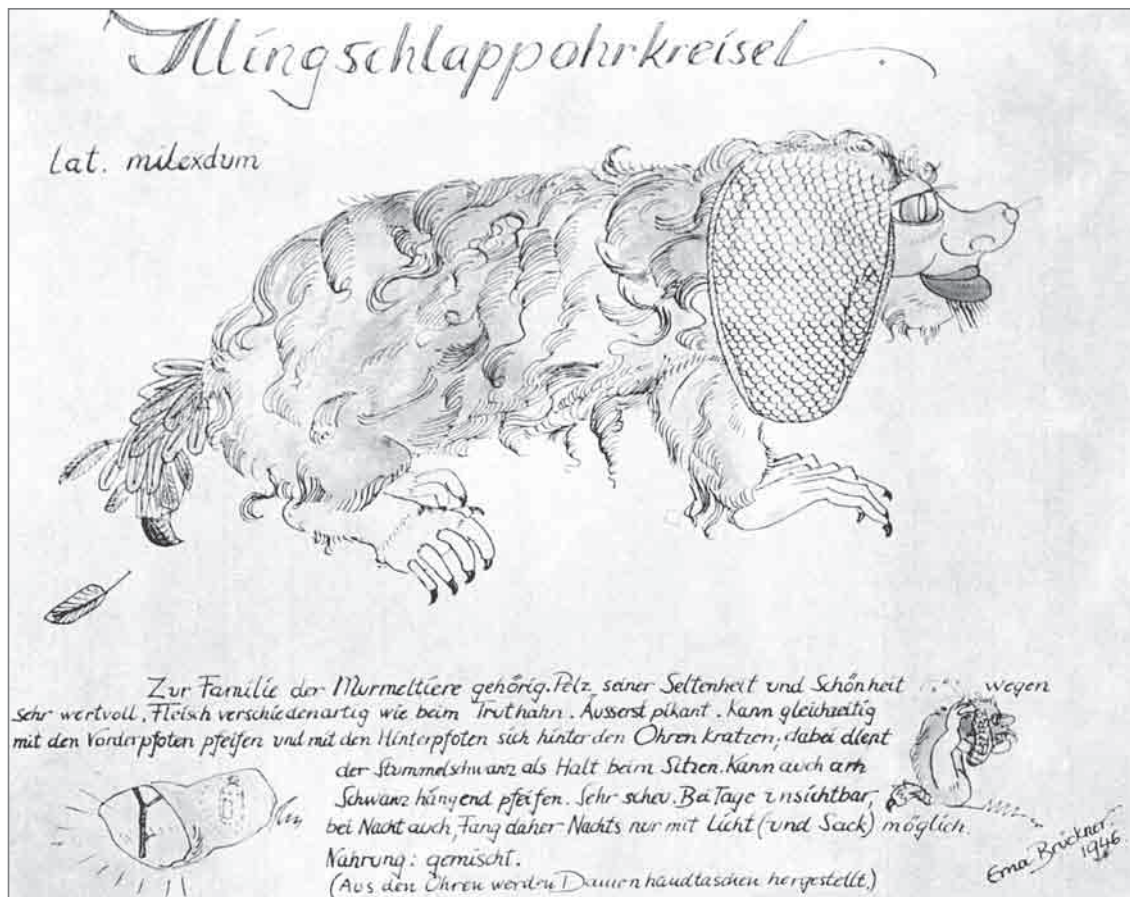 Illingschlappohrkreisel
Lat. milexdum
Zur Familie der Murmeltiere gehörig. Pelz, seiner Seltenheit und Schönheit wegen
sehr wertvoll. Fleisch verschiedenartig wie beim Truthahn. Äusserst pikant. Kann gleichzeitig
mit den Vorderpfoten pfeifen und mit den Hinterpfoten sich hinter den Ohren kratzen, dabei dient
der Stummelschwanz als Halt beim Sitzen. Kann auch am
Schwanz hängend pfeifen. Sehr scheu. Bei Tage unsichtbar,
bei Nacht auch, Fang daher Nachts nur mit Licht (und Sack) möglich.
Nahrung: gemischt.
(Aus den Ohren werden Damenhandtaschen hergestellt.)
Erna Brückner
1946